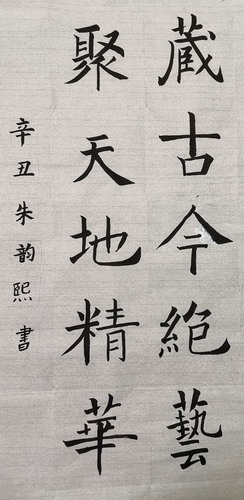 藏古今絕藝
聚天地精華
辛丑朱韵熙書